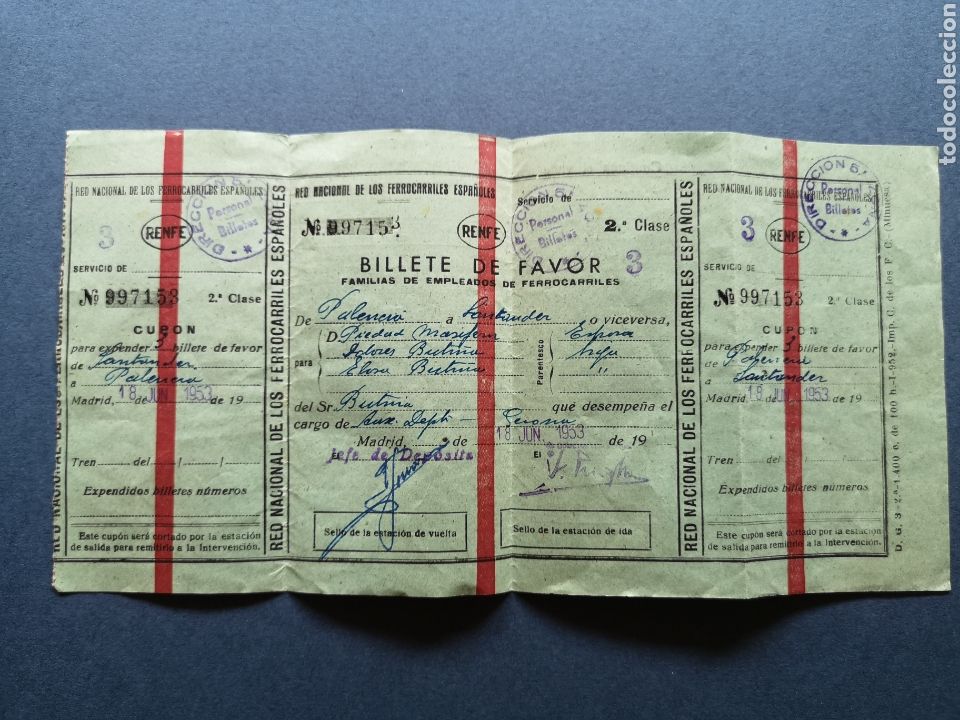 RED NACIONAL DE LOS FERROCARRILES ESPAÑOLES
3
RENFE
DIRECCION
Personal
Billetes
SERVICIO DE
Nº 997153 2.ª Clase
CUPON
para expender 3 billete de favor
de Santander
a Palencia
Madrid, 18 JUN. 1953 de 19
Tren del / /
Expendidos billetes números
Este cupón será cortado por la estación
de salida para remitirlo a la Intervención.
RED NACIONAL DE LOS FERROCARRILES ESPAÑOLES
RED NACIONAL DE LOS FERROCARRILES ESPAÑOLES
Servicio de
Nº 997153 RENFE 2.ª Clase
DIRECCION
Personal
Billetes
3
BILLETE DE FAVOR
FAMILIAS DE EMPLEADOS DE FERROCARRILES
De Palencia a Santander o viceversa,
para D. Piedad Esposa
Dolores Butina hija
Elisa Butina "
Parentesco
del Sr. Butina que desempeña el
cargo de Aux. Depto
Madrid, de 18 JUN. 1953 de 19
Jefe de Depósito El
Sello de la estación de vuelta
Sello de la estación de ida
RED NACIONAL DE LOS FERROCARRILES ESPAÑOLES
RED NACIONAL DE LOS FERROCARRILES ESPAÑOLES
3
RENFE
DIRECCION
Personal
Billetes
SERVICIO DE
Nº 997153 2.ª Clase
CUPON
para expender 3 billete de favor
de Palencia
a Santander
Madrid, 18 JUN. 1953 de 19
Tren del / /
Expendidos billetes números
Este cupón será cortado por la estación
de salida para remitirlo a la Intervención.
todocoleccion